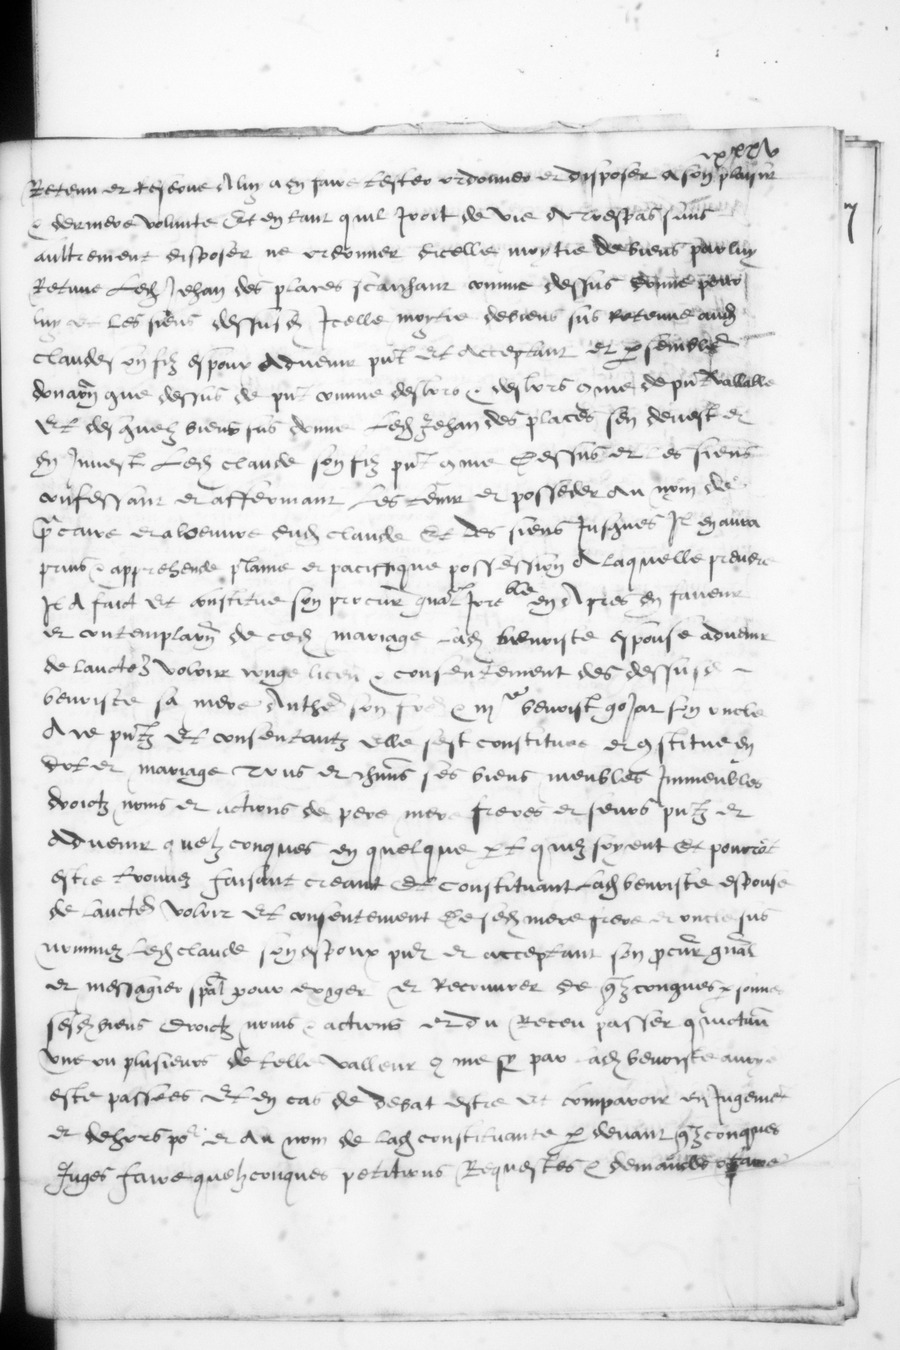 xxxv
Retenu et Reserve A luy a en faire tester ordonner et disposer a son plaisir
& derniere volunte Et en tant quil Iroit de vie A trespas sans
aultrement disposer ne ordonner dicelle moytie de biens par luy
Retenue Ledz Jehan des places scaichant comme dessus donne pour
luy et Les siens dessusdz Icelle moytie de biens sus Retenue audz
claude son filz espoux Advenir pnt Et Acceptant et p semblē
donaōn que dessus de pnt comme desloro & deslors cōme de pnt vallable
Et desquelz biens sus donne Ledz Jehan des places sen devest et
en Invest Ledz claude son filz pnt cōme dessus et les siens
confessant et affermant Les tenir et posseder Au nom de
pcaire et a loeuvre dudz claude Et des siens Jusques Il en aura
prins & apprehende plaine et paciffique possession A laquelle prendre
Il A faict Et constitue son procur gnāl Irre ble en Apres en faveur
et contemplaōn de cedz mariage Ladz benoiste espouse advenir
de laucte voloir conge licen & consentement des dessusdz
benoiste sa mere Anthe son fre & mre benoist gojat son oncle
A ce pntz Et consentantz Elle sest constituee et cōstitue en
dot et mariage Tous et chūns ses biens meubles Immeubles
droictz noms et actions de pere mere freres et seurs pntz et
Advenir quelzconques en quelque pt quilz soyent Et pourrōt
estre trouvez faisant creant Et constituant Ladz benoiste espouse
de laucte voloir Et consentement desdz mere frere et oncle sus
nommez Ledz claude son espoux pnt et acceptant son pcur gnāl
et messagier spāl pour exiger et Recouvrer de qzconques psonnes
sesdz biens droictz noms & actions et du Receu passer quictan
une ou plusieurs de telle valleur cōme sy par ladz benoiste avoye
este passees Et en cas de debat estre et comparoir en Jugemēt
et dehors po et Au nom de ladz constituante p devant qzconques
Juges faire quelzconques petitions Requestes & demandes